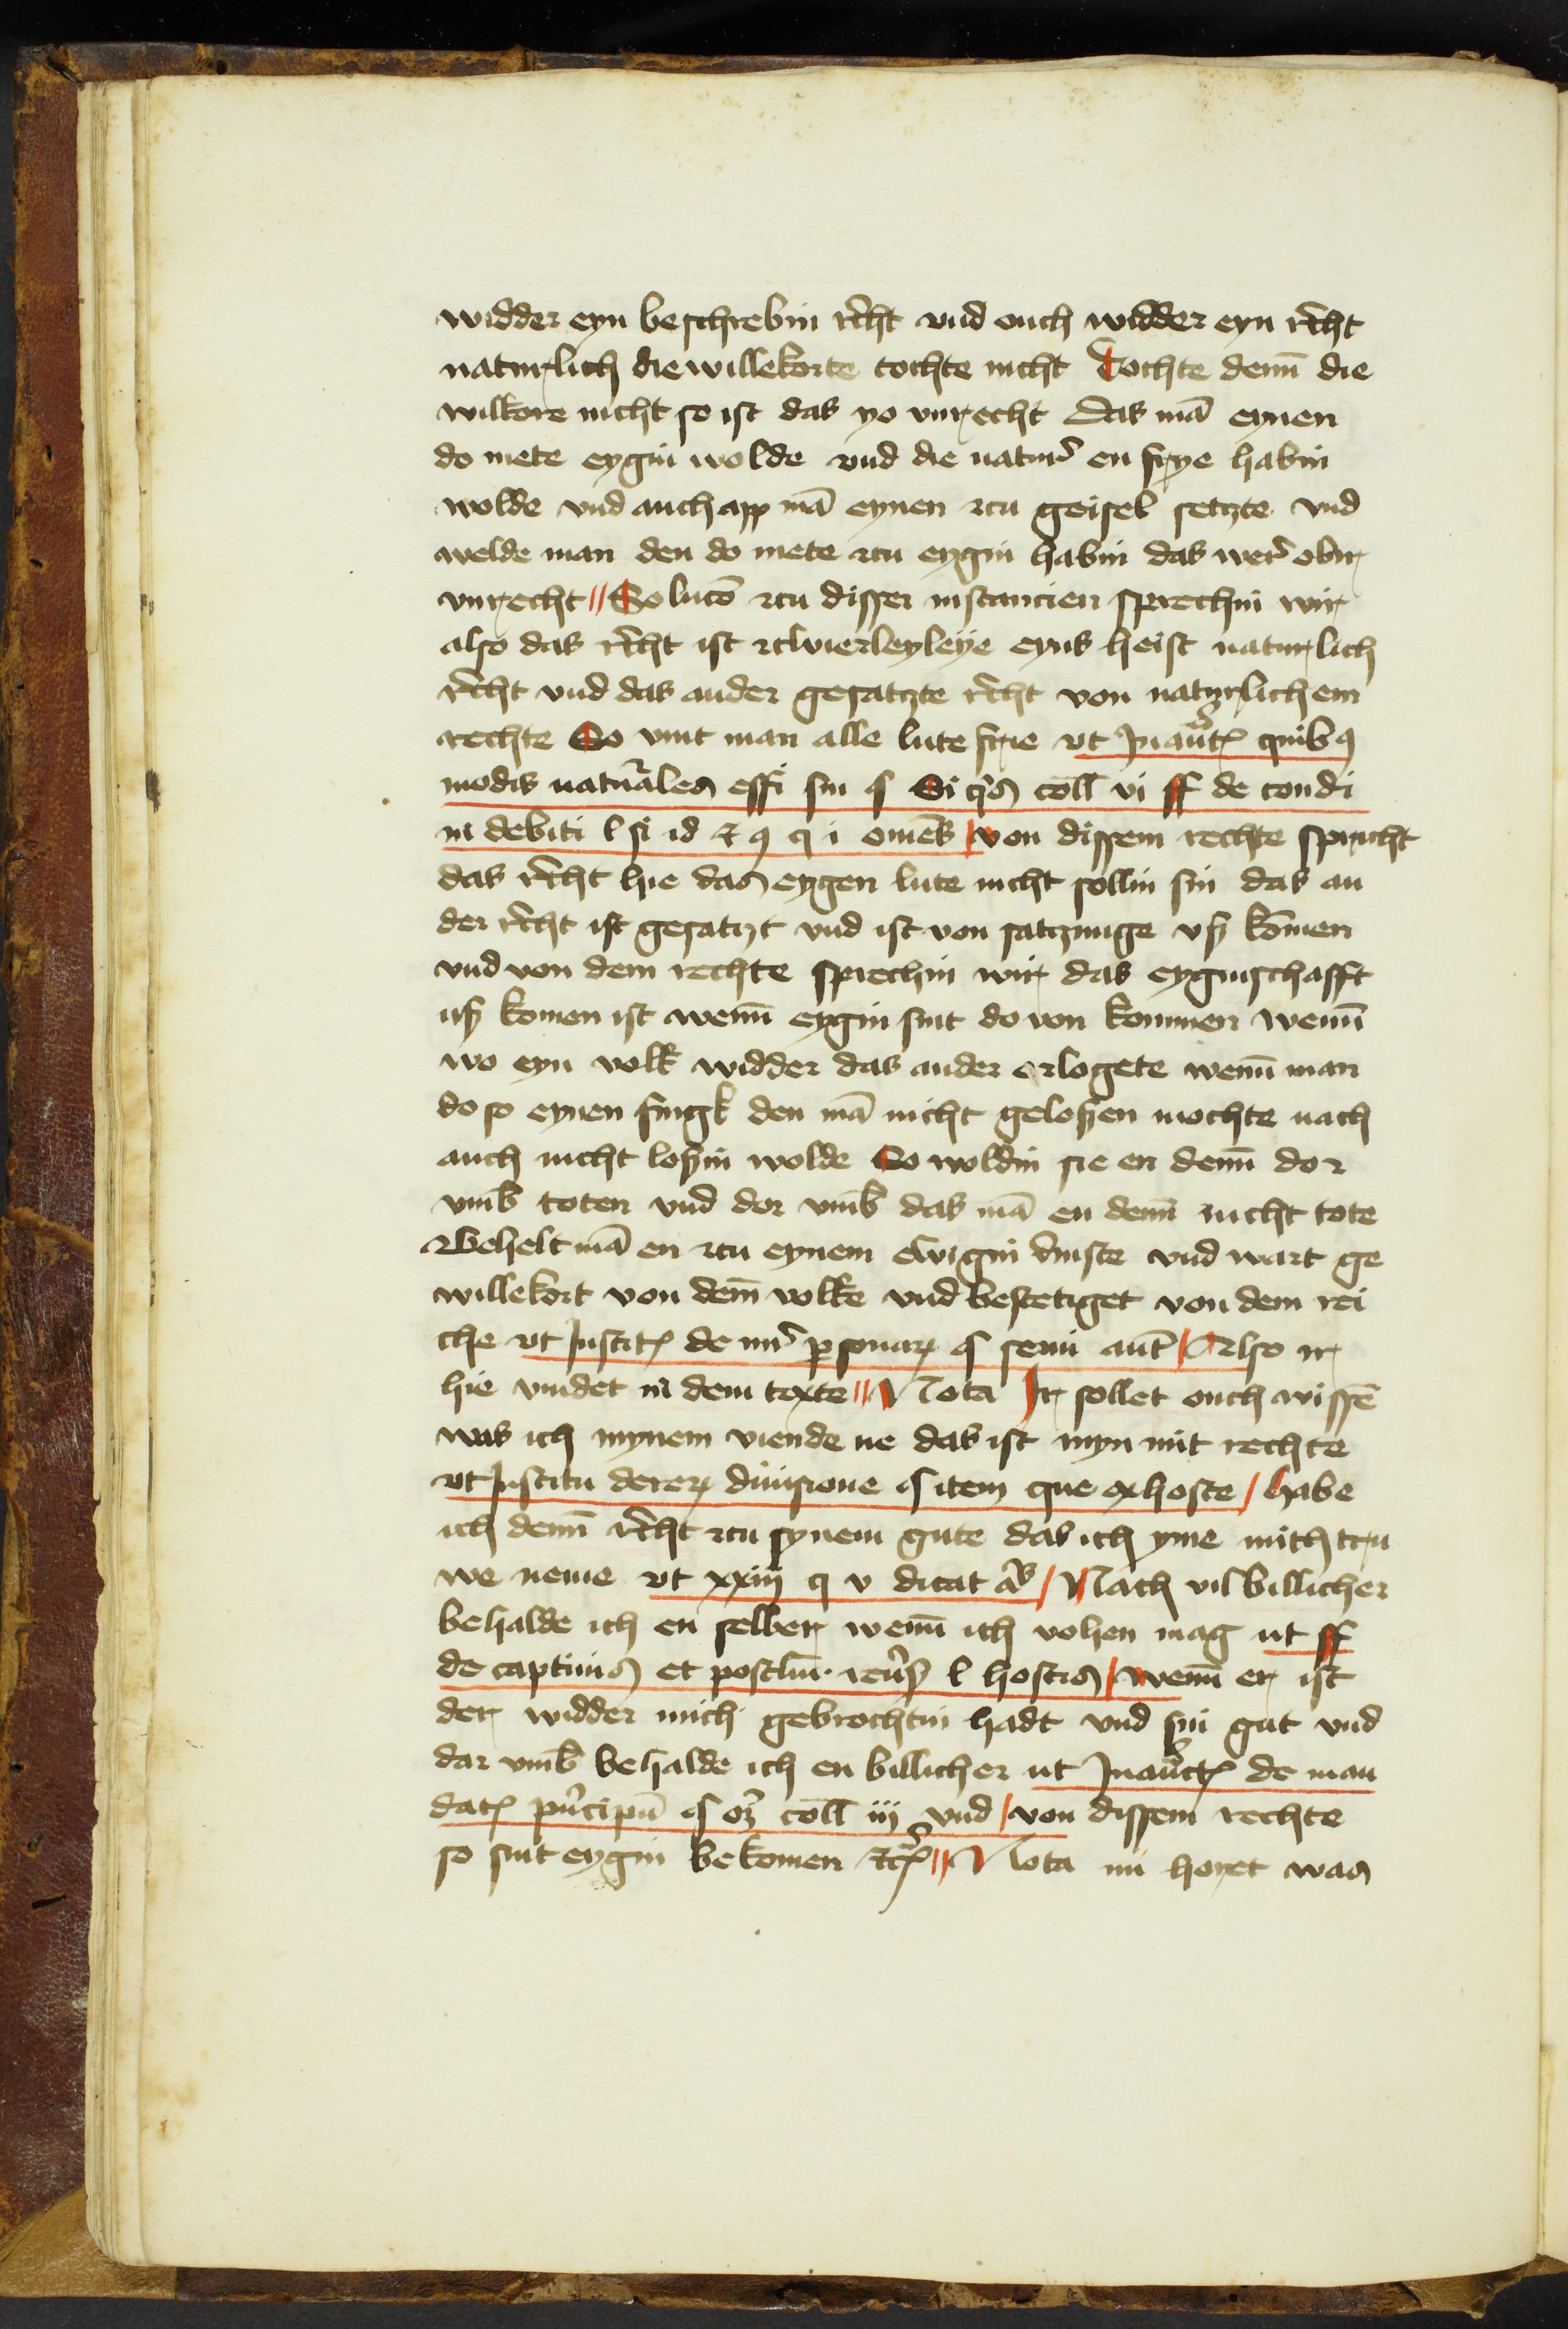 widder eyn beschrebin recht vnd ouch widder eyn recht
naturlich die willekorte tochte nicht Tochte den̄ die
wilkore nicht so ist das yo vnrecht Das mā eynen
do mete eygin wolde vnd die natur en frye habin
wolde vnd auch app mā eynen zcu geisel setzte vnd
welde man den do mete zcu eygin habin das wer obir
vnrecht // Solucō zcu disser instancien sprechin wir
also das recht ist zcwierleyleye eyns heist naturlich
recht vnd das ander gesatzte recht von naturlichem
rechte So vint man alle lute frie vt Inaut quibꝫ
modis naturales effi sui § Si qͥs coll vi ff de condi
in debiti l si id von dissem rechte spricht
das recht hie das eygen lute nicht sollin sin das an
der recht ist gesatzt vnd ist von satzunge vß komen
vnd von dem rechte sprechin wir das eyginschafft
uß komen ist wen̄ eygin sint do von kommen wen̄
wo eyn volk widder das ander orlogete wen̄ man
do so eynen fingk den mā nicht geloßen mochte nach
auch nicht loßin wolde So woldin sie en den̄ dor
vmb toten vnd dor vmb das mā en den̄ nicht tote
Behelt mā en zcu eynem ewigin dinste vnd wart ge
willekort von dem volke vnd bestetiget von dem rei
che vt Instit de iur personar § serui aut / Also ir
hie vindet in dem texte // Nota Ir sollet ouch wissē
was ich mynem viende ne das ist myn mit rechte
vt Institu derer diuisione § item que exhoste / habe
ich den̄ recht zcu synem gute das ich yme mith tru
we neme vt xxiij q v dicat / Nach vil billicher
behalde ich en selber wen̄ ich vohen mag ut ff
de captiuis et postlim reuers l hostes / wen̄ er ist
der widder mich gebrochtin hadt vnd sin gut vnd
dar vmb behalde ich en billicher ut Inauct de man
dat principū § coll iij vnd / von dissem rechte
so sint eygin bekomen etc // Nota nu horet was